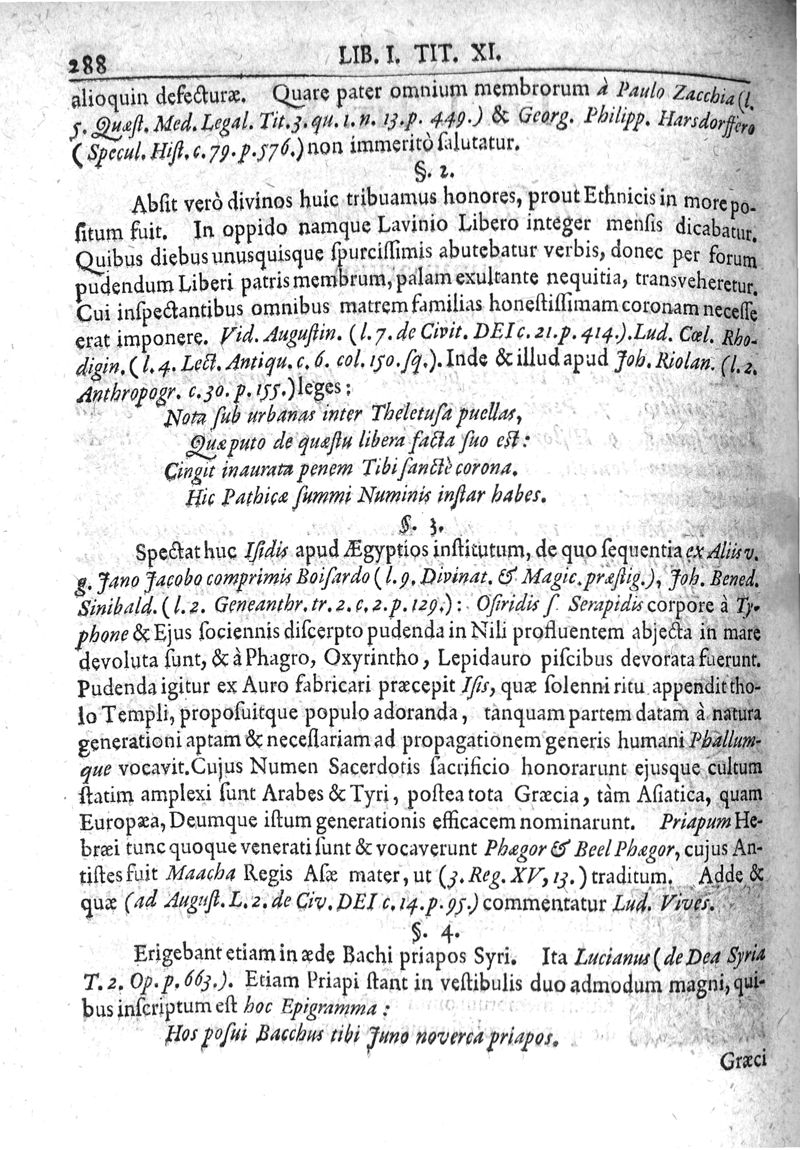 288 LIB. I. TIT. XI.
alioquin defecturæ. Quare pater omnium membrorum à Paulo Zacchia (l.
5. Quæſt. Med. Legal. Tit. 3. qu. 1. n. 13. p. 449.) & Georg. Philipp. Harsdorffero
(Specul. Hiſt. c. 79. p. 576.) non immeritò ſalutatur.
§. 2.
Abſit verò divinos huic tribuamus honores, prout Ethnicis in more po-
ſitum fuit. In oppido namque Lavinio Libero integer menſis dicabatur.
Quibus diebus unusquisque ſpurciſſimis abutebatur verbis, donec per forum
pudendum Liberi patris membrum, palam exultante nequitia, transveheretur.
Cui inſpectantibus omnibus matrem familias honeſtiſſimam coronam neceſſe
erat imponere. Vid. Auguſtin. (l. 7. de Civit. DEI c. 21. p. 414.). Lud. Cœl. Rho-
digin. (l. 4. Lect. Antiqu. c. 6. col. 150. ſq.). Inde & illud apud Joh. Riolan. (l. 2.
Anthropogr. c. 30. p. 155.) leges:
Nota ſub urbanas inter Theletuſa puellas,
Quæ puto de quæſtu libera facta ſuo est:
Cingit inaurata penem Tibi ſanctè corona.
Hic Pathicæ ſummi Numinis inſtar habes.
§. 3.
Spectat huc Iſidis apud Ægyptios inſtitutum, de quo ſequentia ex Aliis v.
g. Jano Jacobo comprimis Boiſardo (l. 9. Divinat. & Magic. præſtig.), Joh. Bened.
Sinibald. (l. 2. Geneanthr. tr. 2. c. 2. p. 129.): Oſiridis ſ. Serapidis corpore à Ty-
phone & Ejus ſociennis diſcerpto pudenda in Nili profluentem abjecta in mare
devoluta ſunt, & à Phagro, Oxyrintho, Lepidauro piſcibus devorata fuerunt.
Pudenda igitur ex Auro fabricari præcepit Iſis, quæ ſolenni ritu appendit tho-
lo Templi, propoſuitque populo adoranda, tanquam partem datam à natura
generationi aptam & neceſſariam ad propagationem generis humani Phallum-
que vocavit. Cujus Numen Sacerdotis ſacrificio honorarunt ejusque cultum
ſtatim amplexi ſunt Arabes & Tyri, poſtea tota Græcia, tàm Aſiatica, quam
Europæa, Deumque iſtum generationis efficacem nominarunt. Priapum He-
bræi tunc quoque venerati ſunt & vocaverunt Phægor & Beel Phægor, cujus An-
tiſtes fuit Maacha Regis Aſæ mater, ut (3. Reg. XV, 13.) traditum. Adde &
quæ (ad Auguſt. L. 2. de Civ. DEI c. 14. p. 95.) commentatur Lud. Vives.
§. 4.
Erigebant etiam in æde Bachi priapos Syri. Ita Lucianus (de Dea Syria
T. 2. Op. p. 663.). Etiam Priapi ſtant in veſtibulis duo admodum magni, qui-
bus inſcriptum eſt hoc Epigramma:
Hos poſui Bacchus tibi Juno noverca priapos.
Græci